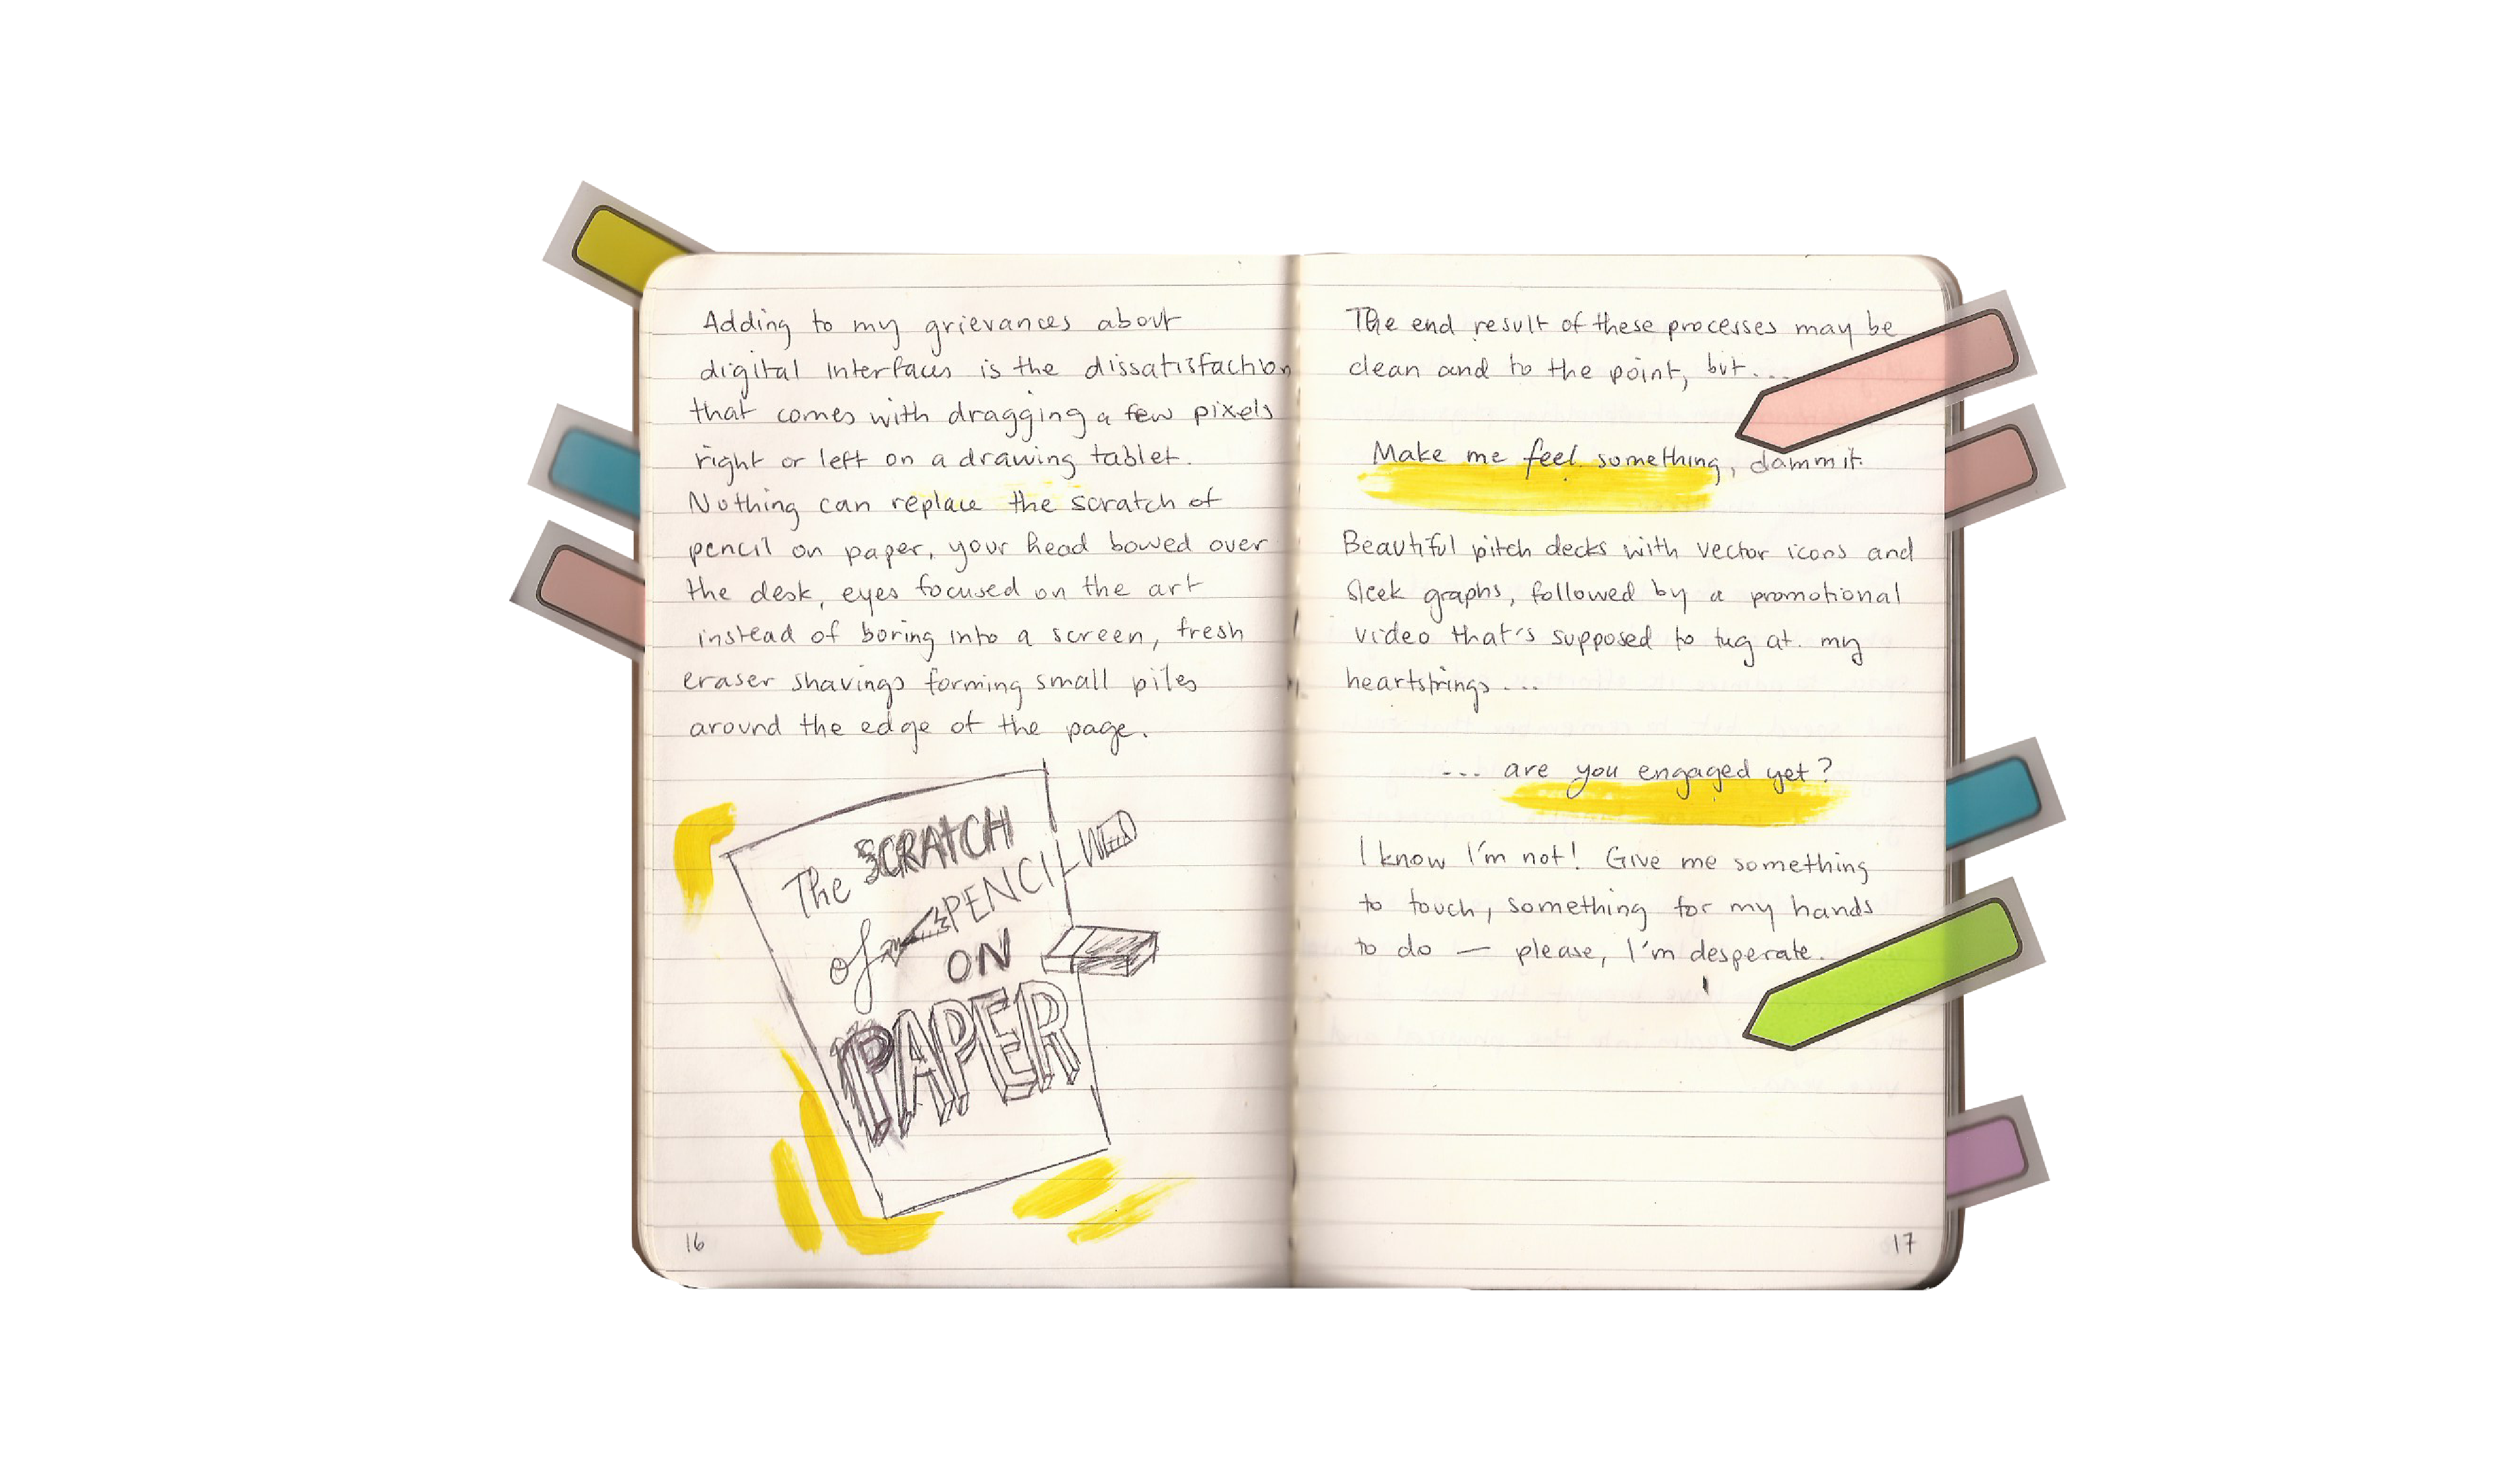 Adding to my grievances about
digital interfaces is the dissatisfaction
that comes with dragging a few pixels
right or left on a drawing tablet.
Nothing can replace the scratch of
pencil on paper, your head bowed over
the desk, eyes focused on the art
instead of boring into a screen, fresh
eraser shavings forming small piles
around the edge of the page.
The SCRATCH
of PENCIL
ON
PAPER
16
The end result of these processes may be
clean and to the point, but...
Make me feel something, dammit.
Beautiful pitch decks with vector icons and
sleek graphs, followed by a promotional
video that's supposed to tug at my
heartstrings...
... are you engaged yet?
I know I'm not! Give me something
to touch, something for my hands
to do — please, I'm desperate.
17